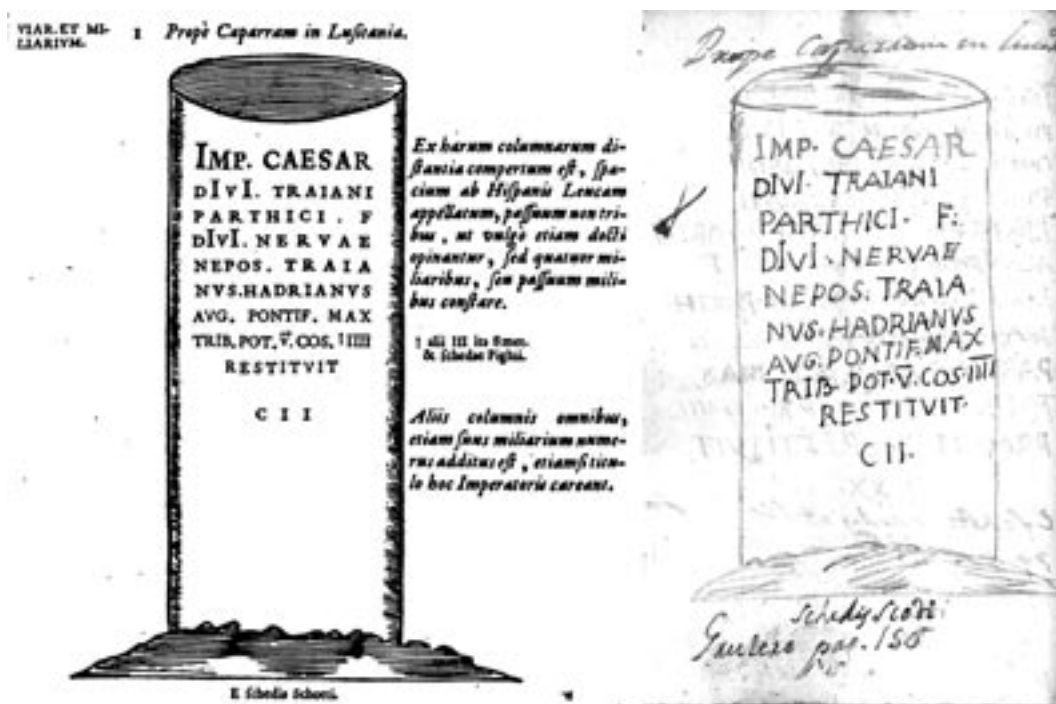 VIAR. ET MI-
LIARIVM.
I Propè Caparram in Lusitania.
IMP. CAESAR
DIVI. TRAIANI
PARTHICI . F
DIVI. NERVAE
NEPOS. TRAIA
NVS.HADRIANVS
AVG. PONTIF. MAX
TRIB. POT. V. COS. † IIII
RESTITVIT
C I I
Ex harum columnarum di-
stantia compertum est, spa-
cium ab Hispanis Leucam
appellatum, passuum non tri-
bus, ut vulgò etiam docti
opinantur, sed quatuor mi-
liaribus, seu passuum mili-
bus constare.
† alii III ita Smet.
& schedae Pighii.
Aliis columnis omnibus,
etiam suus miliarium nume-
rus additus est, etiamsi titu-
lo hoc Imperatoris careant.
E schedis Schotti.
Prope Caparram in
IMP. CAESAR
DIVI. TRAIANI
PARTHICI. F.
DIVI. NERVAE
NEPOS. TRAIA
NVS. HADRIANVS
AVG. PONTIF. MAX
TRIB. POT. V. COS. IIII
RESTITVIT.
C II.
schedis Scotti
Grutero pag. 156